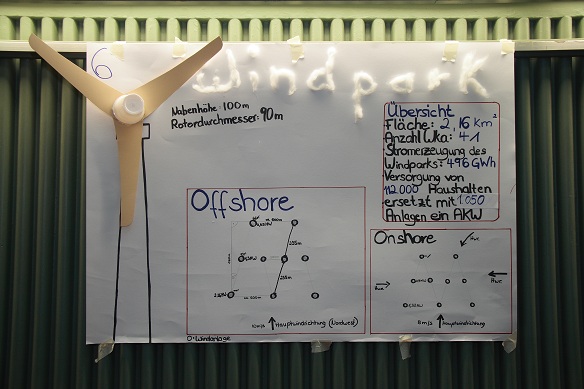 6
Windpark
Nabenhöhe: 100m
Rotordurchmesser: 90m
Übersicht
Fläche: 2,16 Km²
Anzahl Wka: 41
Stromerzeugung des
Windparks: 496 GWh
Versorgung von
112.000 Haushalten
ersetzt mit 1.050
Anlagen ein AKW
Offshore
Hauptwindrichtung (Nordwest)
O = Windanlage
Onshore
Hwr
Hwr
Hwr
8m/s
Hauptwindrichtung